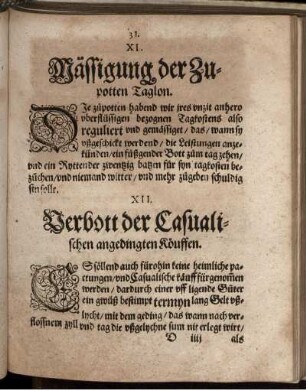 31.
XI.
Mässigung der Zu-
potten Taglon.
DJe zůpotten habend wir jres vnzit anhero
vberflüssigen bezognen Tagkostens also
reguliert vnd gemässiget / das / wann sy
vßgeschickt werdend / die Leistungen anze-
künden / ein fůßgender Bott zům tag zehen /
vnd ein Ryttender zwentzig batzen für syn tagkosten be-
züchen / vnd niemand witter / vnd mehr zůgeben schuldig
sin solle.
XII.
Verbott der Casuali-
schen angedingten Köuffen.
ES söllend auch fürohin keine heimliche pa-
ctungen / vnd Casualische käuff fürgenom̃en
werden / dardurch einer vff ligende Güter
ein gwüß bestimpt termyn lang Gelt vß-
lycht / mit dem geding / das wann nach ver-
flossnem zyll vnd tag die vßgelychne sum nit erlegt wirt /
D iiij als